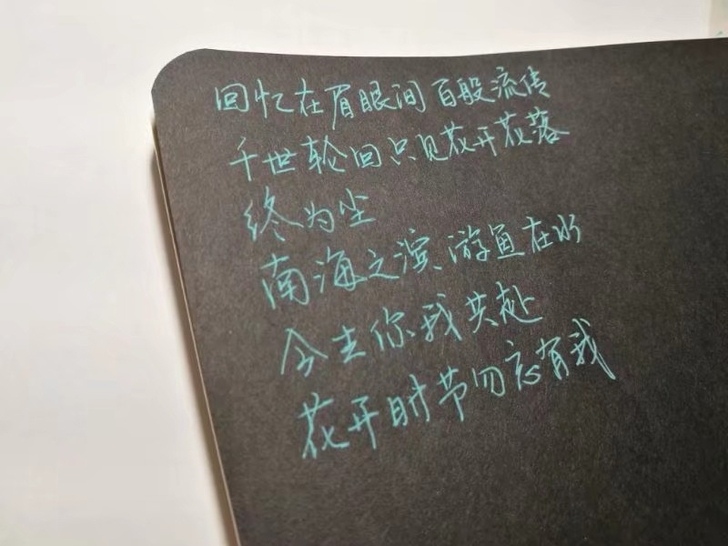 回忆在眉眼间百般流传
千世轮回只见花开花落
终为尘
南海之滨,游鱼在水
今生你我共赴
花开时节勿忘有我